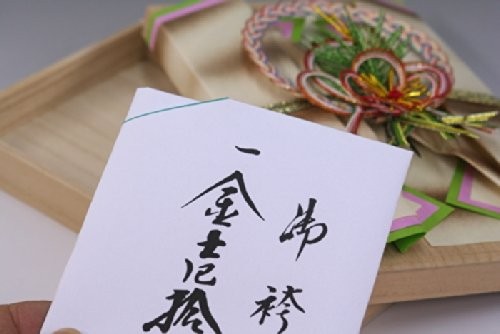 御袴
一金壱拾